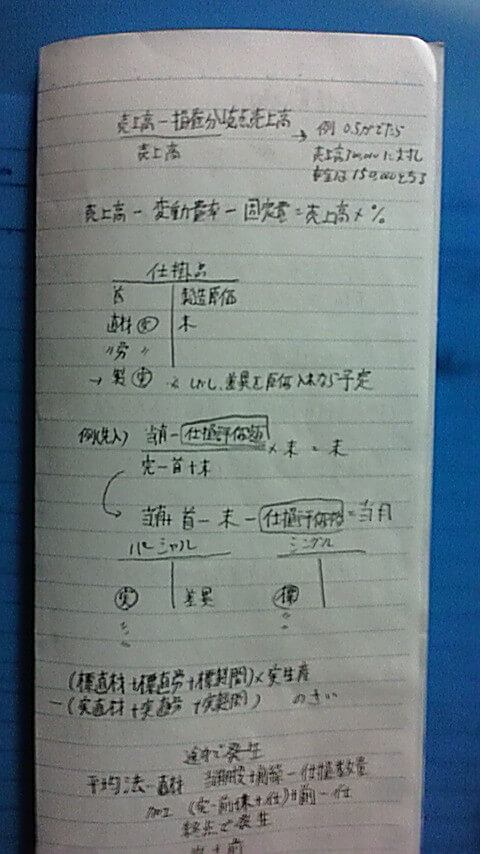 売上高-損益分岐点売上高 → 例 0.5がでたら
売上高 売上高300,000に対し
150,000となる
売上高 - 変動費率 - 固定費 = 売上高 × %
仕掛品
首 製造原価
直材 実 末
〃労 〃
→ 製 実 ※ しかし、差異を原価 なら予定
例(先入) 当月-仕損評価額 × 末 = 末
完-首+末
当月+首-末-仕損評価額=当月
パーシャル シングル
実 差異 標
〃 〃
〃
(標直材+標直労+標製間)×実生産
-(実直材+実直労+実製間) のさい
途中で発生
平均法-直材 -仕損数量
加工 (完-前 +仕)+前-仕
終点で発生
完+前